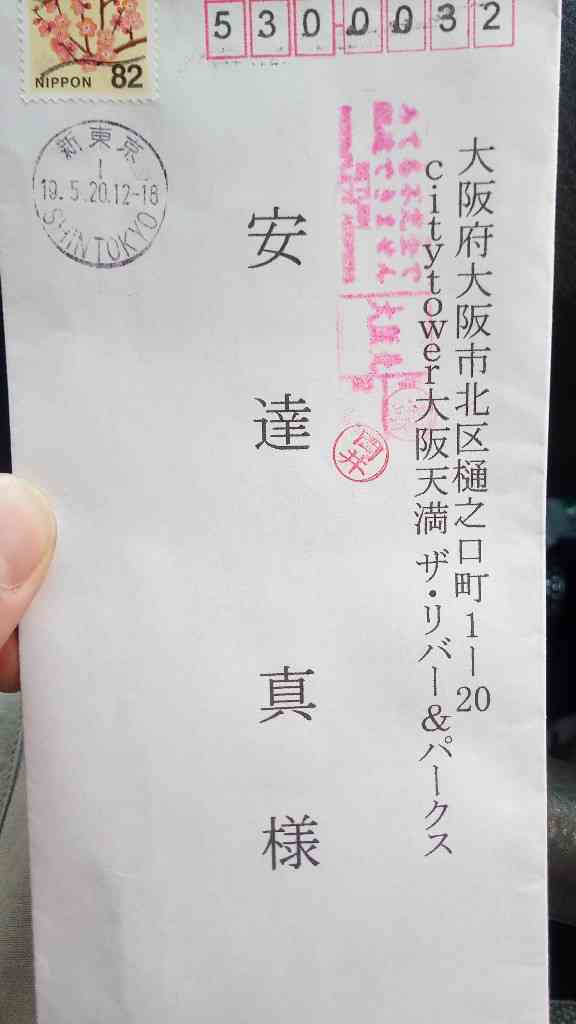 NIPPON 82
5300032
新東京
1
19.5.20.12-18
SHINTOKYO
大阪府大阪市北区樋之口町1-20
citytower大阪天満 ザ・リバー&パークス
あて名不完全で
配達できません
安達真様